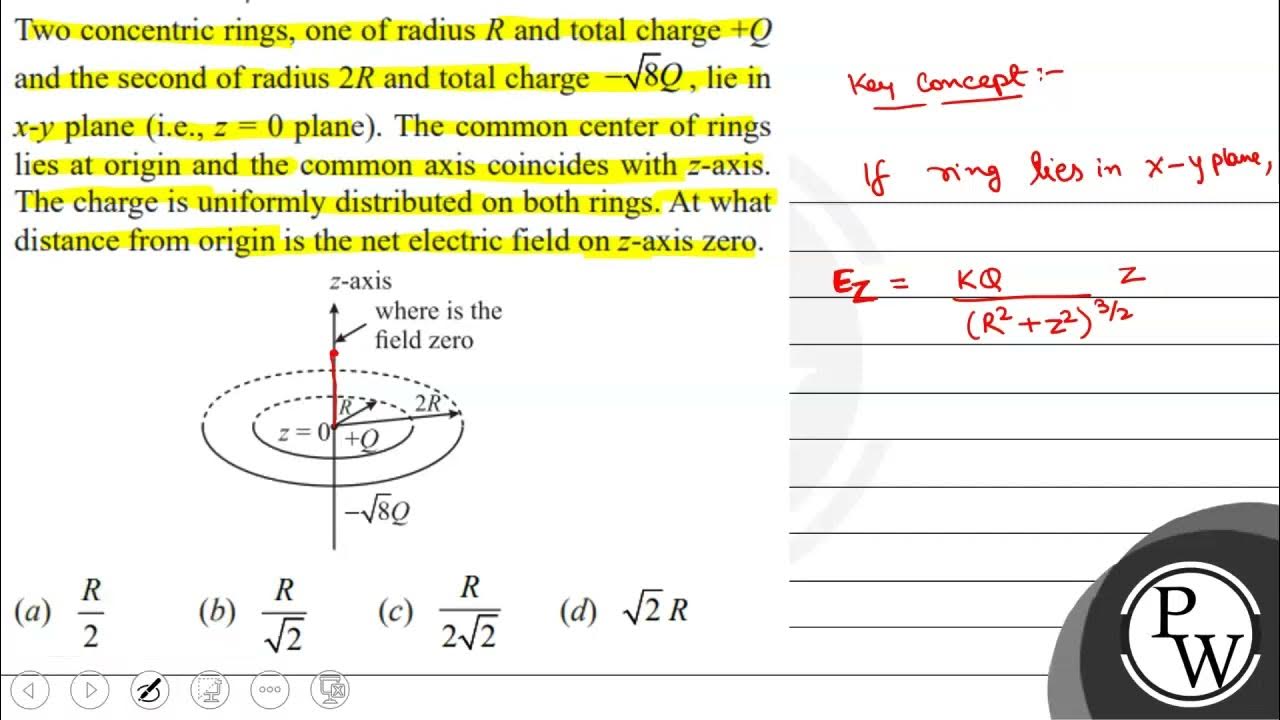 Two concentric rings, one of radius R and total charge +Q
and the second of radius 2R and total charge −√8Q, lie in
x-y plane (i.e., z = 0 plane). The common center of rings
lies at origin and the common axis coincides with z-axis.
The charge is uniformly distributed on both rings. At what
distance from origin is the net electric field on z-axis zero.
z-axis
where is the
field zero
R
2R
z = 0
+Q
−√8Q
(a) R/2 (b) R/√2 (c) R/2√2 (d) √2 R
Key Concept :-
If ring lies in x-y plane,
E_Z = KQ Z / (R² + Z²)^3/2
PW